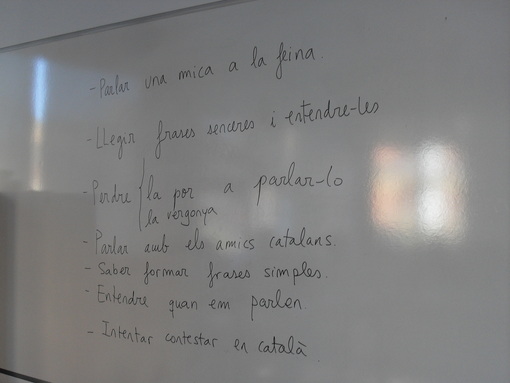 - Parlar una mica a la feina.
- Llegir frases senceres i entendre-les
- Perdre { la por a parlar-lo
la vergonya
- Parlar amb els amics catalans.
- Saber formar frases simples.
- Entendre quan em parlen.
- Intentar contestar en català